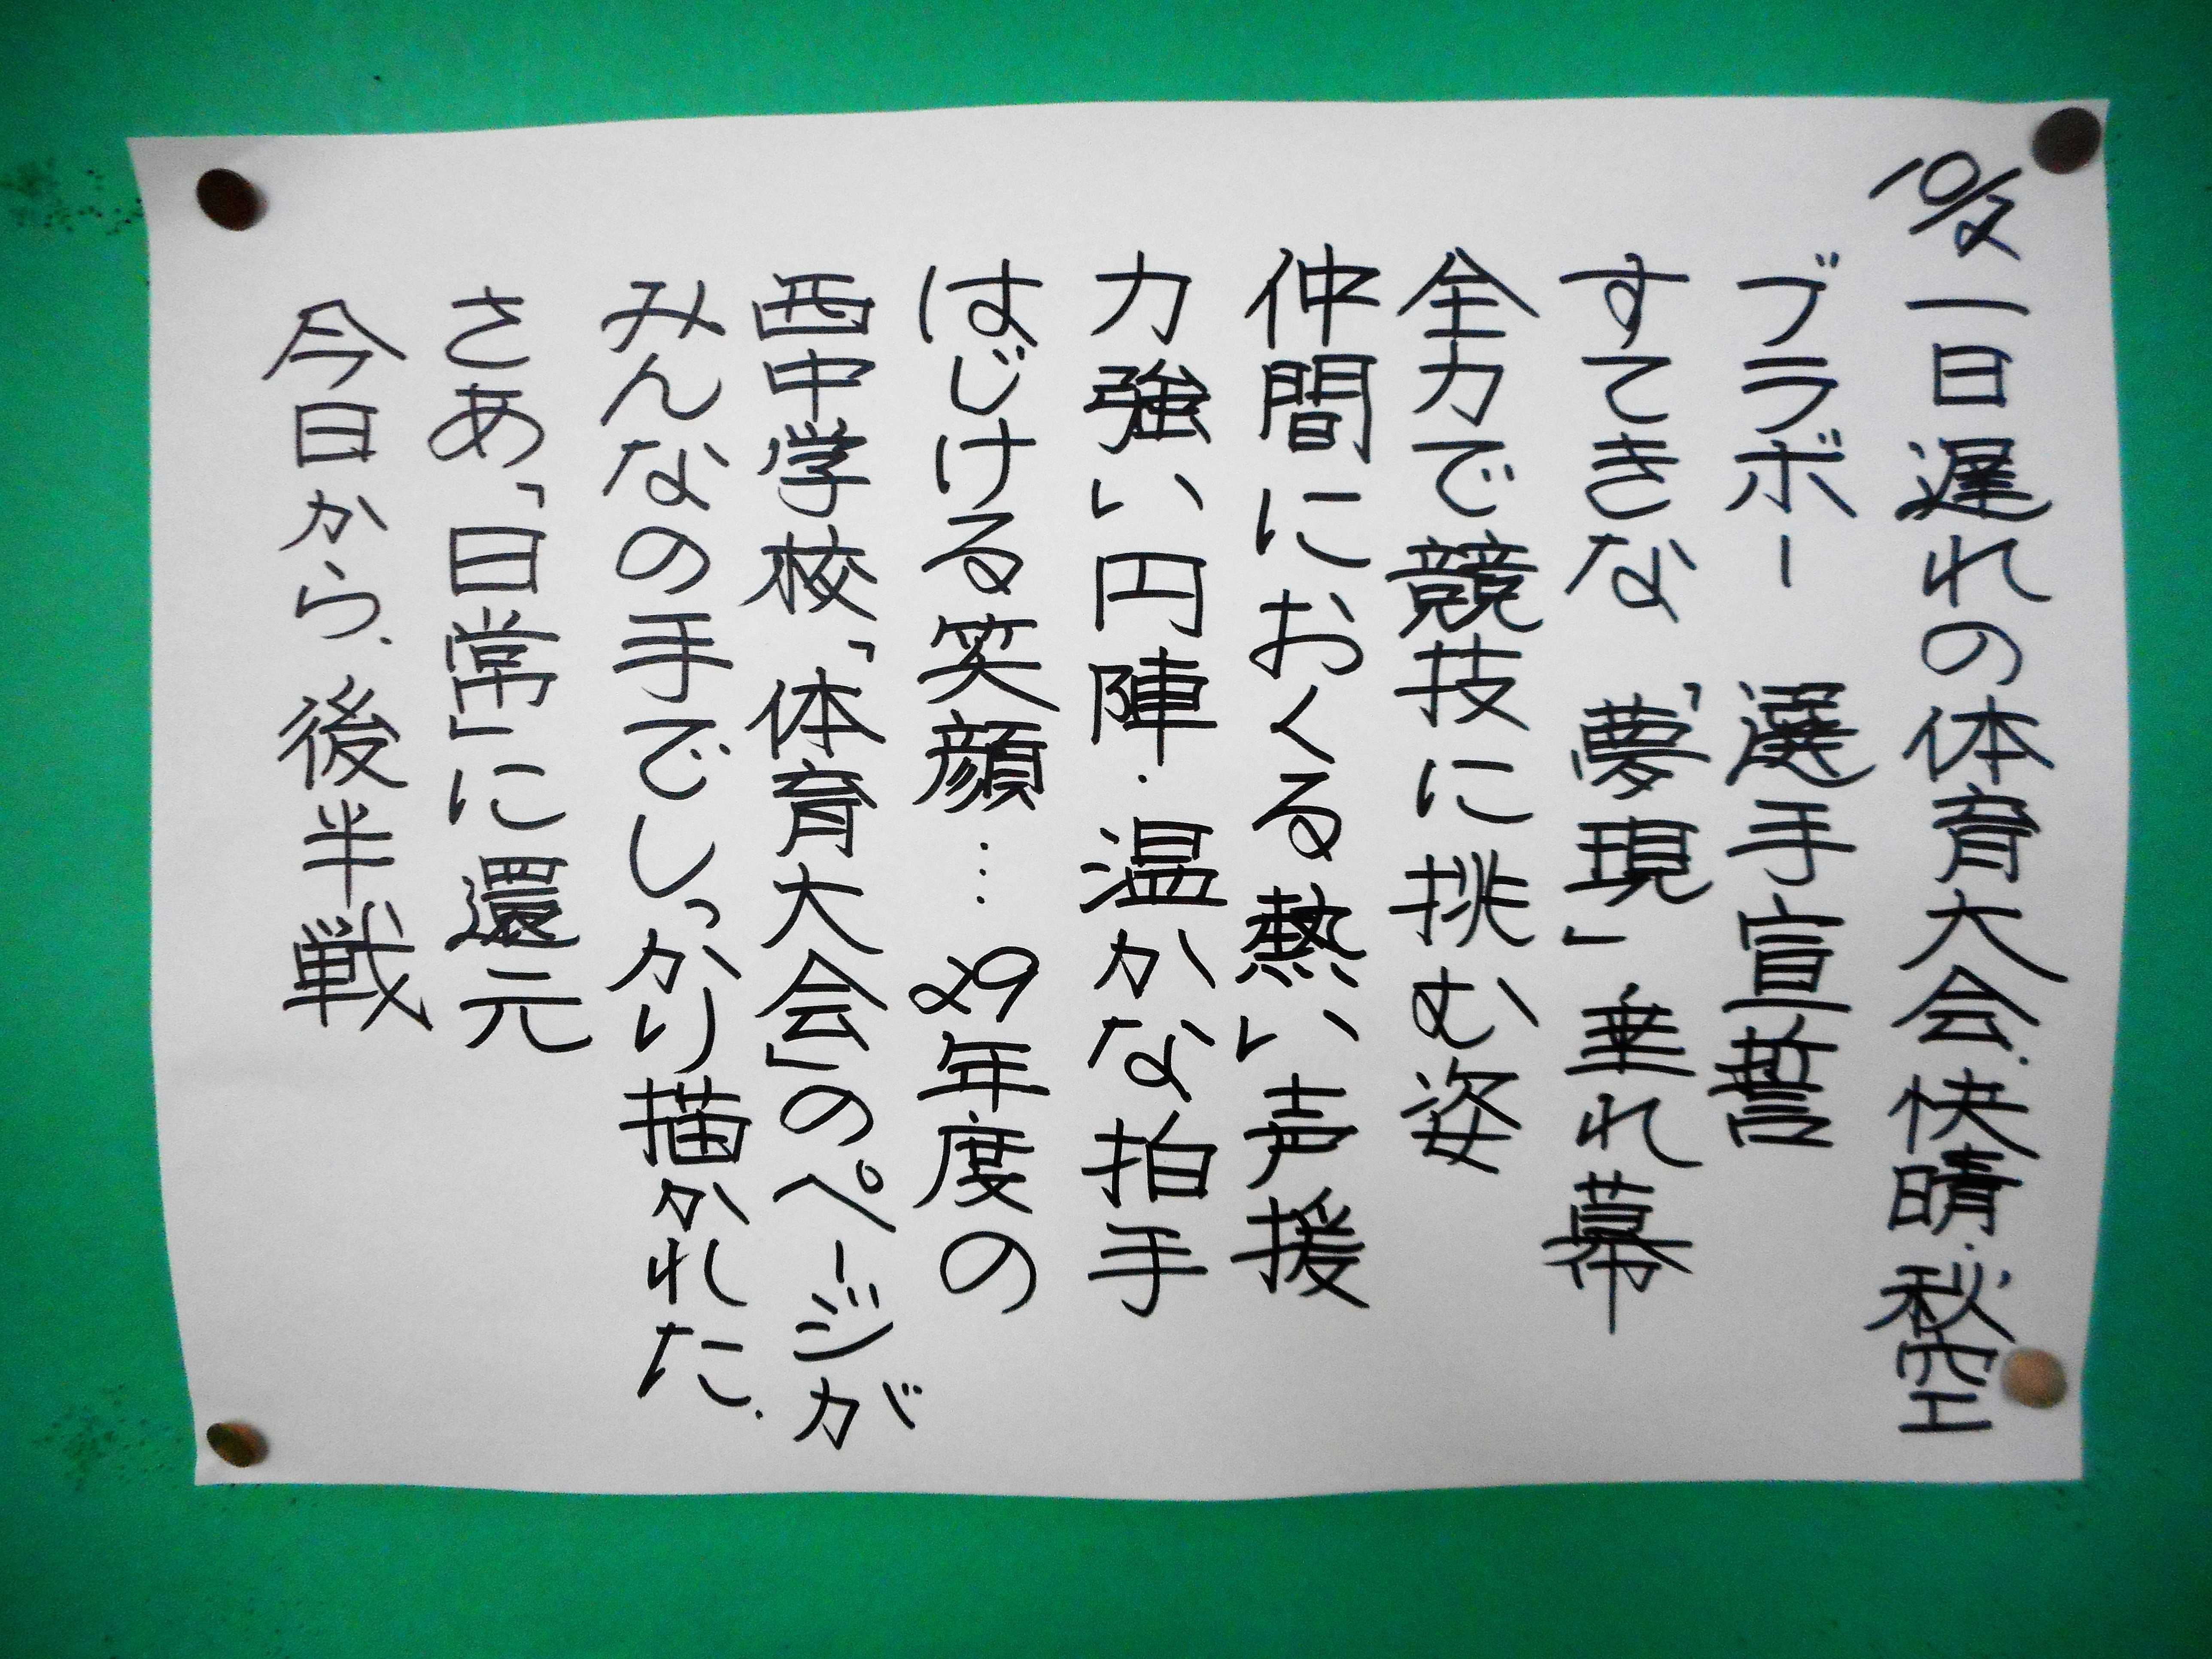 10/2 一日遅れの体育大会.快晴.秋空
ブラボー 選手宣誓
すてきな「夢現」垂れ幕
全力で競技に挑む姿
仲間におくる熱い声援
力強い円陣.温かな拍手
はじける笑顔… 29年度の
西中学校、「体育大会」のページが
みんなの手でしっかり描かれた.
さあ、「日常」に還元
今日から、後半戦